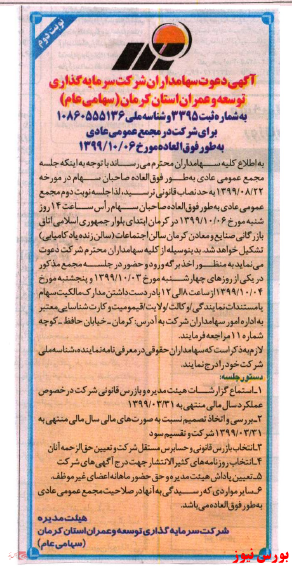 نوبت دوم
آگهی دعوت سهامداران شرکت سرمایه گذاری
توسعه و عمران استان کرمان (سهامی عام)
به شماره ثبت ۳۳۹۵ و شناسه ملی ۱۰۸۶۰۵۵۵۱۳۶
برای شرکت در مجمع عمومی عادی
به طور فوق العاده مورخ ۱۳۹۹/۱۰/۰۶
به اطلاع کلیه سهامداران محترم می رساند با توجه به اینکه جلسه
مجمع عمومی عادی به‌طور فوق العاده صاحبان سهام در مورخه
۱۳۹۹/۰۸/۲۲ به حد نصاب قانونی نرسید، لذا جلسه نوبت دوم مجمع
عمومی عادی به‌طور فوق‌العاده صاحبان سهام رأس ساعت ۱۴ روز
شنبه مورخ ۱۳۹۹/۱۰/۰۶ در کرمان ابتدای بلوار جمهوری اسلامی اتاق
بازرگانی صنایع و معادن کرمان سالن اجتماعات (سالن زنده یاد کامیابی)
تشکیل خواهد شد. بدینوسیله از کلیه سهامداران محترم شرکت دعوت
می نماید به منظور اخذ برگه ورود و حضور در جلسه مجمع مذکور
در یکی از روزهای چهارشنبه مورخ ۱۳۹۹/۱۰/۰۳ و پنجشنبه مورخ
۱۳۹۹/۱۰/۰۴ از ساعت ۸ الی ۱۲ با در دست داشتن مدارک مالکیت سهام
یا مستندات نمایندگی/وکالت/ولایت/قیمومیت و کارت شناسایی معتبر
به اداره امور سهامداران شرکت به آدرس: کرمان - خیابان حافظ - کوچه
شماره ۱۱ مراجعه فرمایند.
لازم به ذکر است که سهامداران حقوقی در معرفی نامه نماینده، شناسه ملی
شرکت خود را درج نمایند.
دستور جلسه:
۱- استماع گزارشات هیئت مدیره و بازرس قانونی شرکت در خصوص
عملکرد سال مالی منتهی به ۱۳۹۹/۰۳/۳۱
۲- بررسی و اتخاذ تصمیم نسبت به صورت های مالی سال مالی منتهی به
۱۳۹۹/۰۳/۳۱ شرکت و تقسیم سود
۳- انتخاب بازرس قانونی و حسابرس مستقل شرکت و تعیین حق الزحمه آنان
۴- انتخاب روزنامه های کثیر الانتشار جهت درج آگهی های شرکت
۵- تعیین پاداش هیئت مدیره و حق حضور ماهانه اعضای غیر موظف.
۶- سایر مواردی که رسیدگی به آنها در صلاحیت مجمع عمومی عادی
به‌طور فوق العاده می باشد.
هیئت مدیره
شرکت سرمایه گذاری توسعه و عمران استان کرمان
(سهامی عام)
بورس نیوز